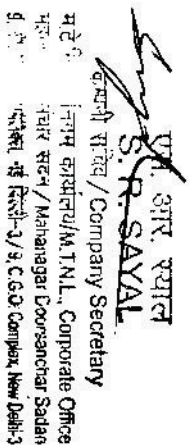 एस. आर. सयाल
S. R. SAYAL
कम्पनी सचिव/Company Secretary
निगम कार्यालय/M.T.N.L., Corporate Office
संचार सदन/Mahanagar Doorsanchar Sadan
नई दिल्ली-3/9, C.G.O. Complex, New Delhi-3